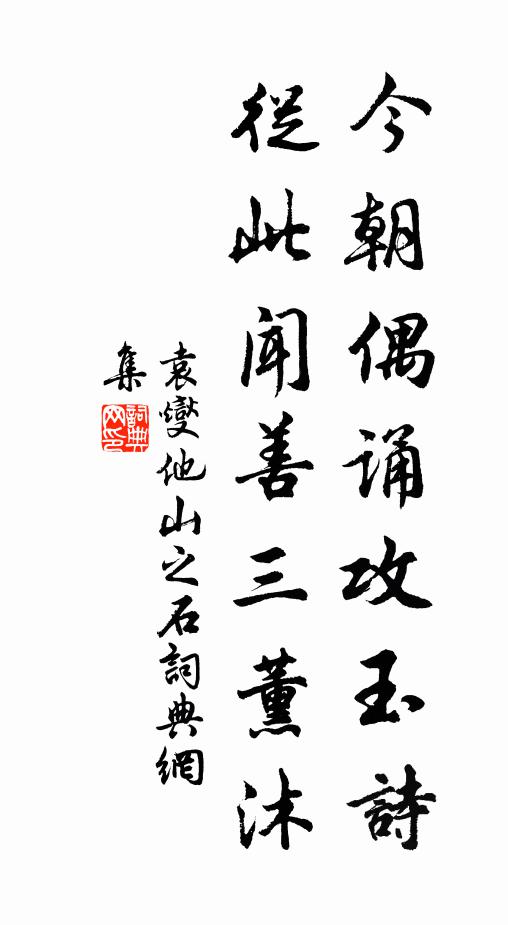 今朝偶诵攻玉詩
從此闻善三薰沐
袁燮他山之石詞典網
集
詞典网印